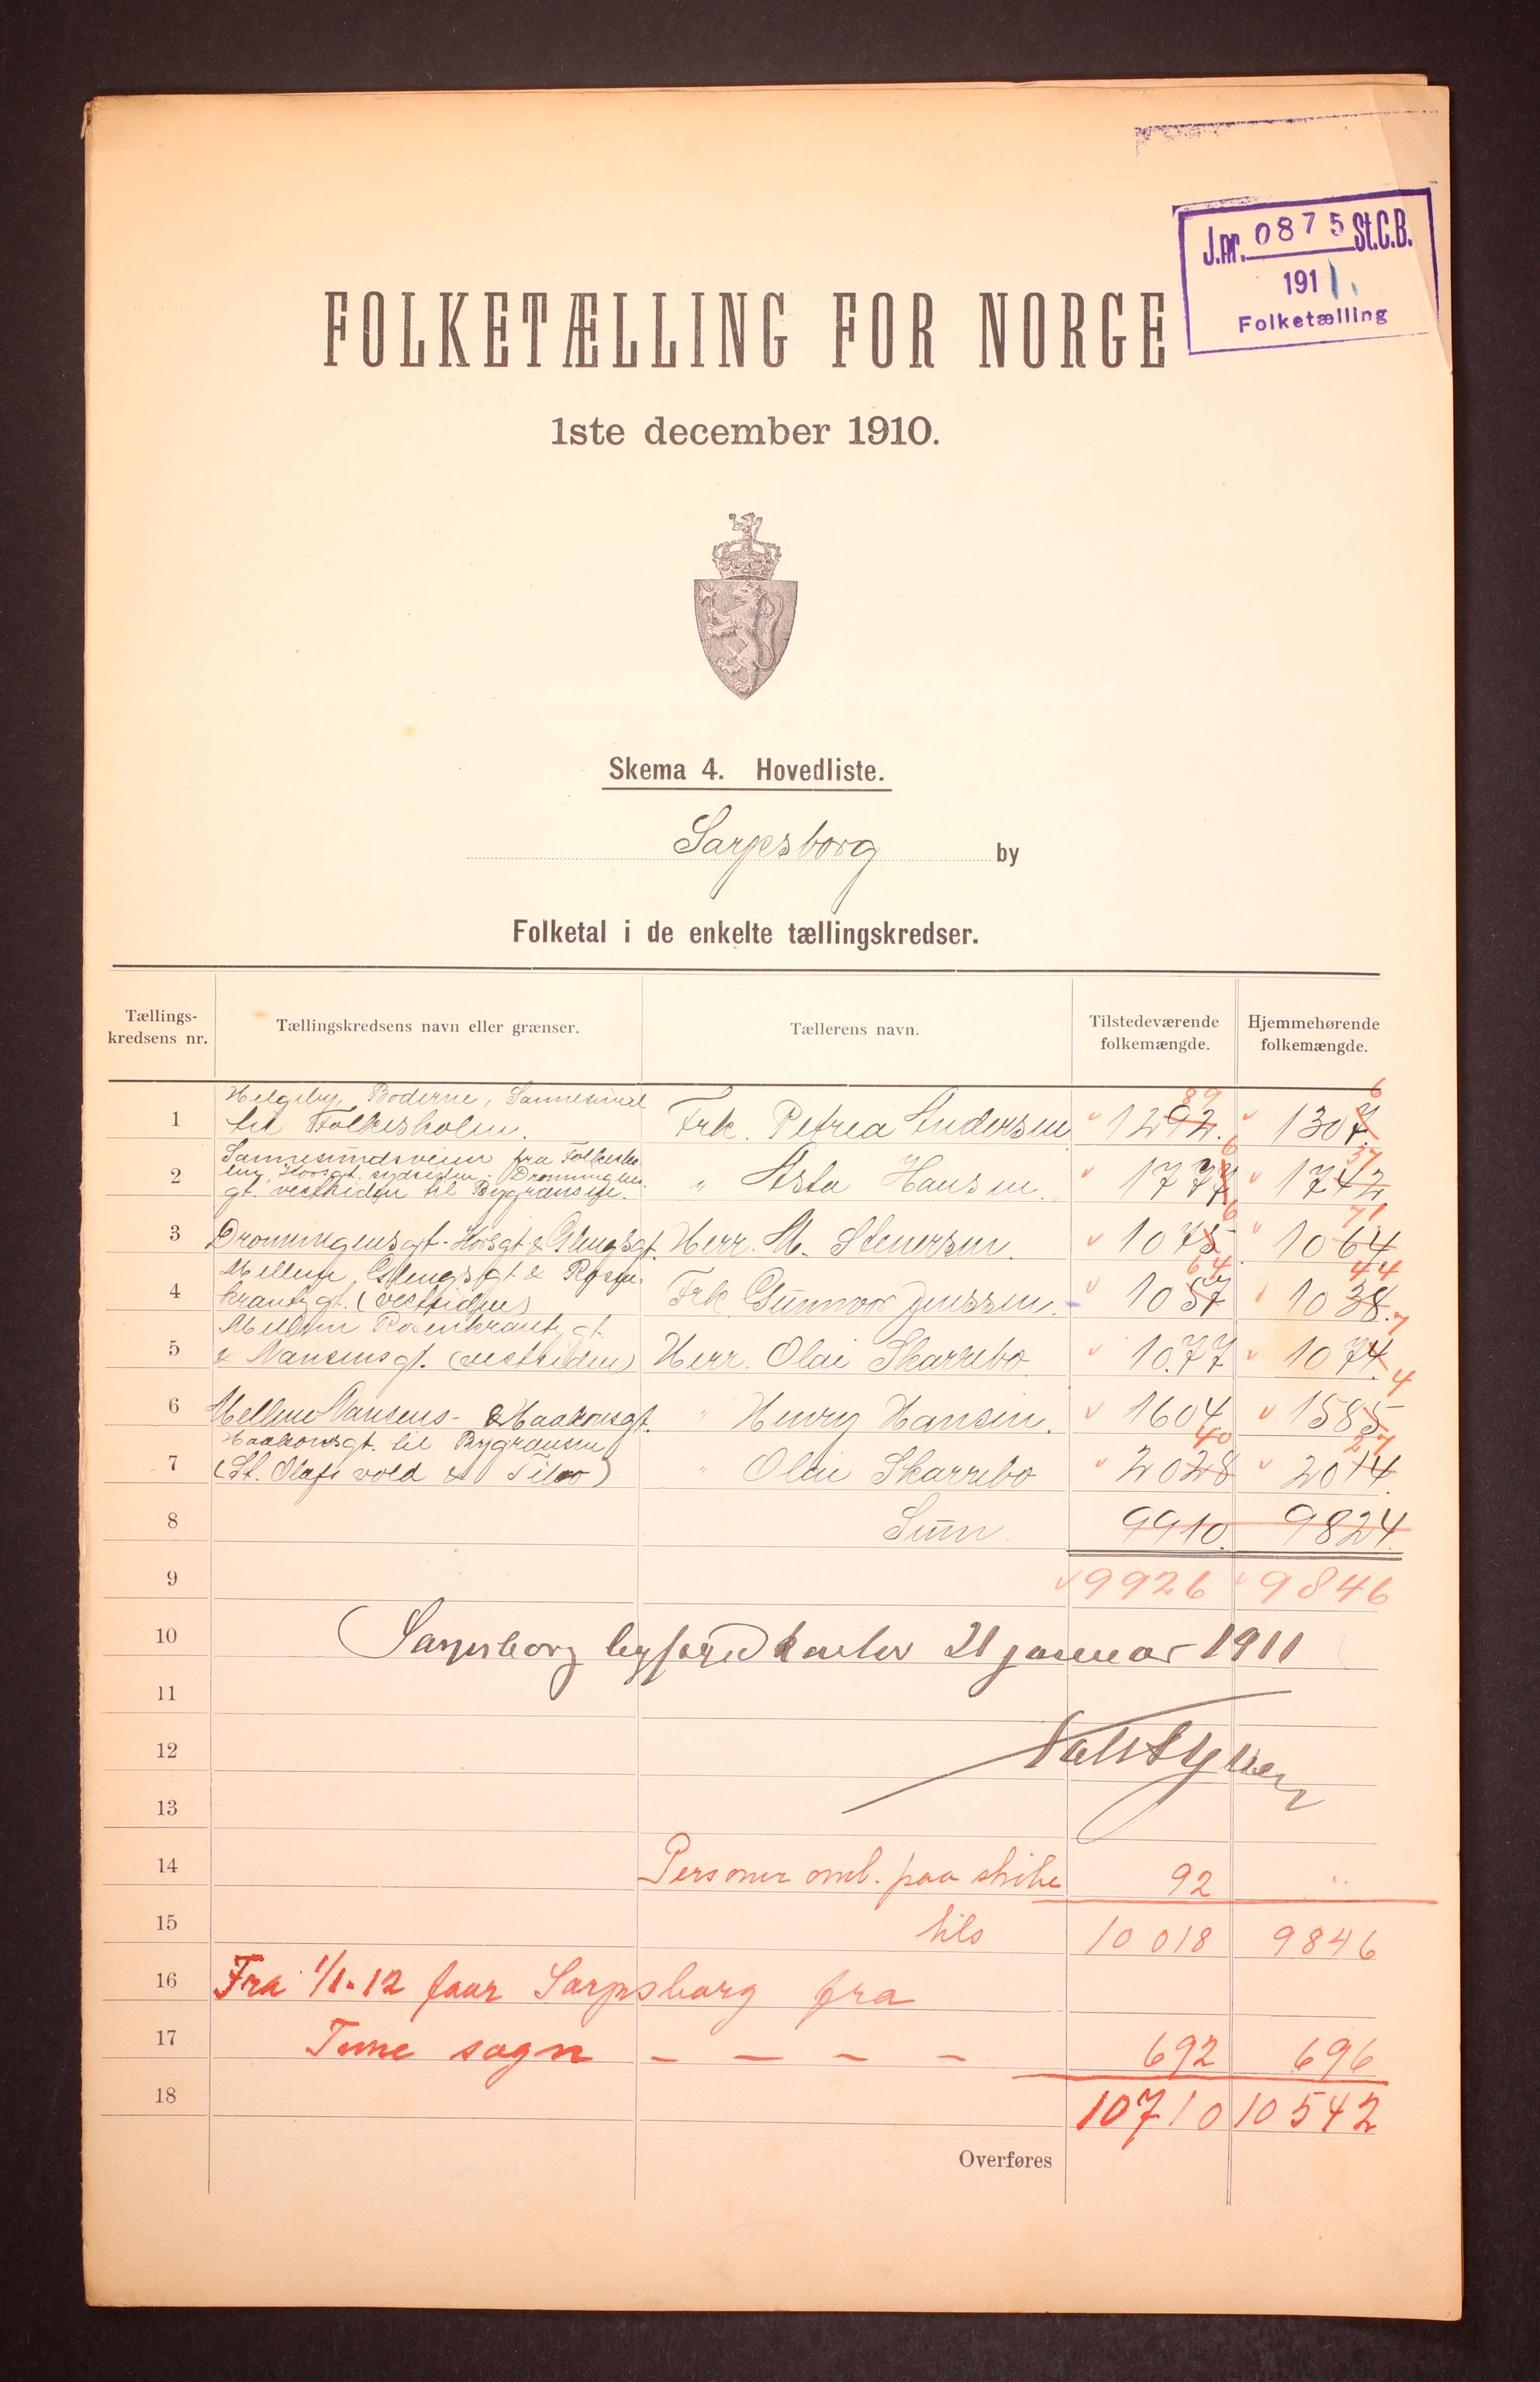 J.nr. 0875 St.C.B.
1911.
Folketælling
FOLKETÆLLING FOR NORGE
1ste december 1910.
Skema 4. Hovedliste.
Sarpsborg by
Folketal i de enkelte tællingskredser.
Tællings-kredsens nr. Tællingskredsens navn eller grænser. Tællerens navn. Tilstedeværende folkemængde. Hjemmehørende folkemængde.
89 6
Helgeby, Boderne, Sannesund
1 til Folkesholm. Frk. Petrea Andersen 1292. 1307
6 37
Sannesundsveien fra Folkeshol
2 Korsgt. sydsiden Dronningens
gt. vestsiden til Bygrænsen. " Asta Hansen. 1777 1742
6 71
3 Dronningensgt. Korsgt & Glengsgt. Herr. M. Stenersen. 1075 1064
64 44
Mellem Glengsgt & Rosen
4 krantzgt. (vestsiden) Frk Gunvor Jenssen. 1057 1038.
7
Mellem Rosenkrantz gt.
5 & Nansensgt. (vestsiden) Herr. Olai Skarrebo. 1077 1074
4
6 Mellem Nansens- & Haakonsgt. " Henry Hansen. 1604 1585
40 27
Haakonsgt. til Bygrænsen
7 (St. Olafs vold & Tibo) " Olai Skarrebo 2028 2014.
8 Sum. 9910. 9824.
9 9926 9846
10 Sarpsborg 21 januar 1911
11
12
13
14 Personer omb. paa skibe 92 "
15 tils 10 018 9846
16 Fra 1/1-12 faar Sarpsborg fra
17 Tune sogn – – – – 692 696
18 10710 10542
Overføres